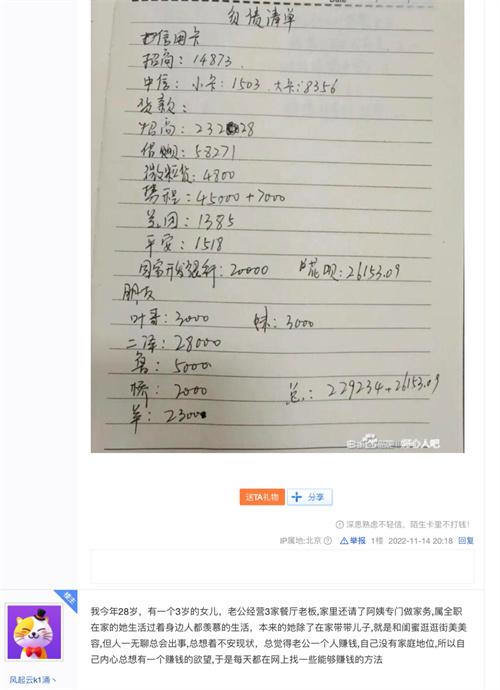 负债清单
信用卡
招商：14873.
中信：小卡：1503 大卡：8356
贷款：
招商：232 28
借呗：58271
微粒贷：4800
携程：45000+7000
美团：1385
平安：1518
国家开发银行：20000 花呗：26153.09
朋友
叶哥：3000 妹：3000
二泽：28000
鲁：5000
桥：2000
羊：2300
总：229234+26153.09
送TA礼物
分享
深思熟虑不轻信，陌生卡里不打钱！
IP属地:北京 举报 1楼 2022-11-14 20:18 回复
楼主
我今年28岁，有一个3岁的女儿，老公经营3家餐厅老板,家里还请了阿姨专门做家务,属全职
在家的她生活过着身边人都羡慕的生活，本来的她除了在家带带儿子,就是和闺蜜逛逛街美美
容,但人一无聊总会出事,总想着不安现状，总觉得老公一个人赚钱,自己没有家庭地位,所以自
己内心总想有一个赚钱的欲望,于是每天都在网上找一些能够赚钱的方法
风起云k1涌